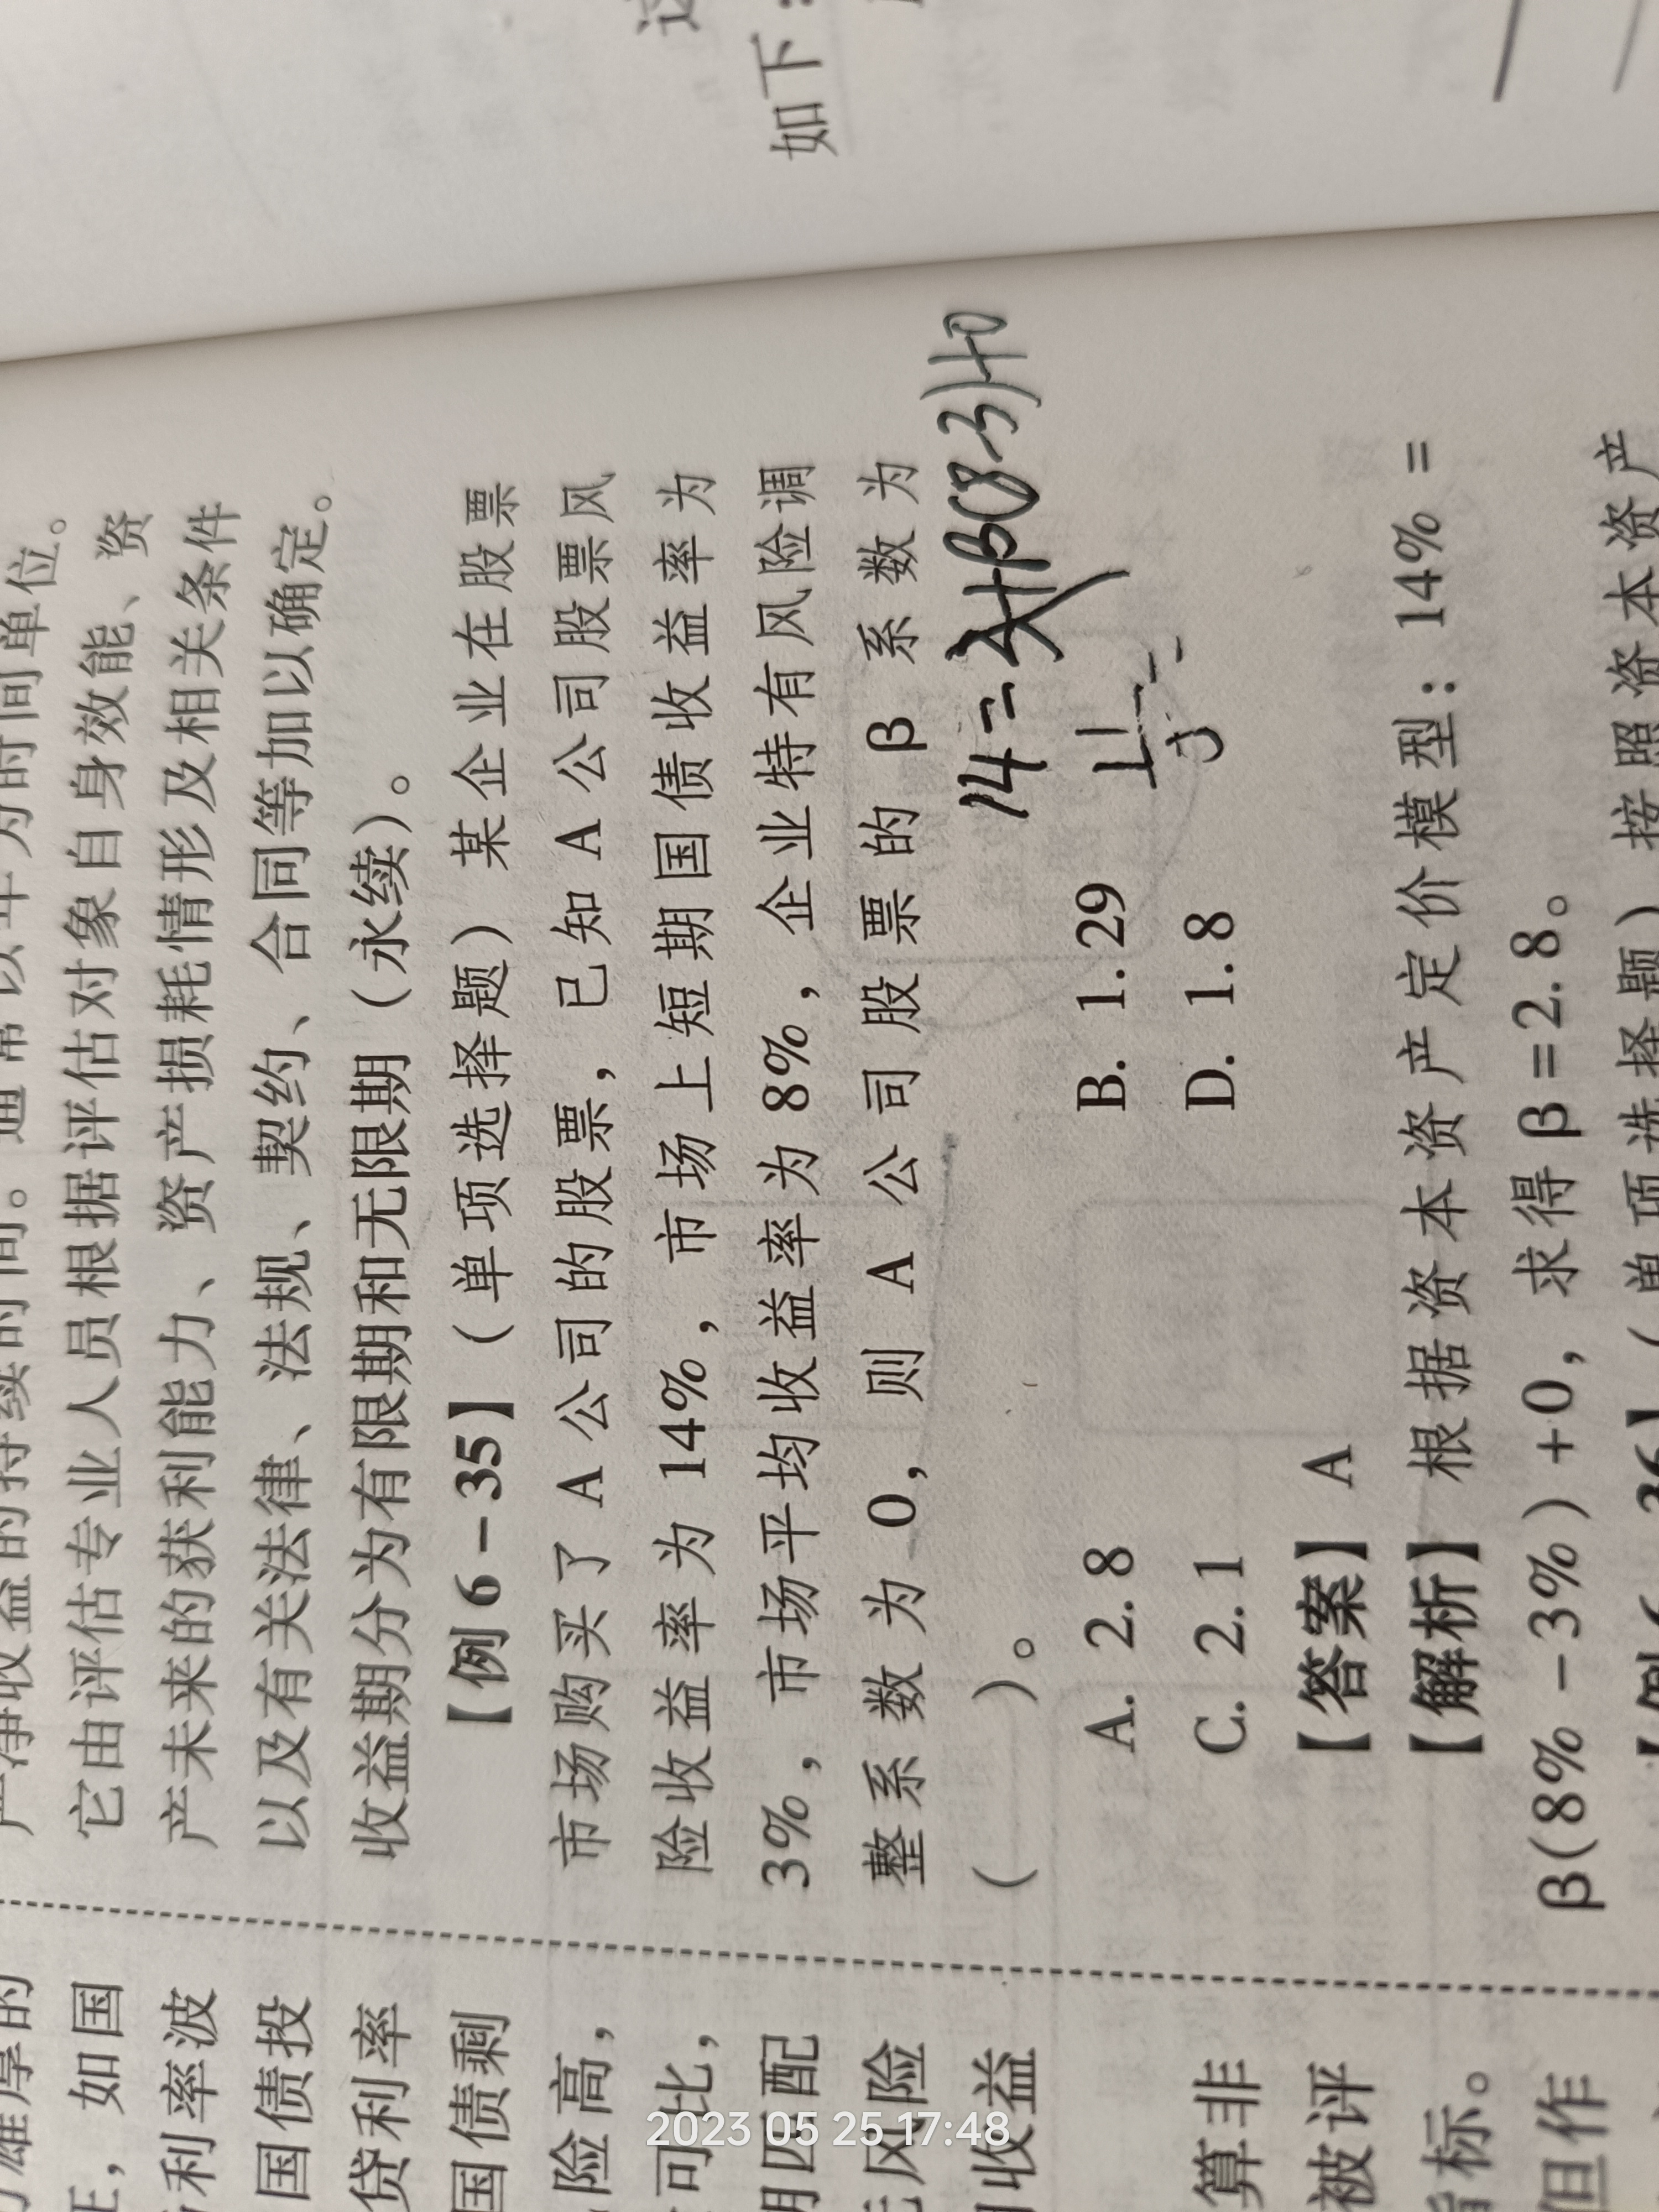 如下：
产净收益的持续时间。通常以年为时间单位。
它由评估专业人员根据评估对象自身效能、资
产未来的获利能力、资产损耗情形及相关条件
以及有关法律、法规、契约、合同等加以确定。
收益期分为有限期和无限期（永续）。
【例6-35】（单项选择题）某企业在股票
市场购买了A公司的股票，已知A公司股票风
险收益率为14%，市场上短期国债收益率为
3%，市场平均收益率为8%，企业特有风险调
整系数为0，则A公司股票的β系数为
（ ）。
14=
β(8-3)+0
A. 2.8 B. 1.29
C. 2.1 D. 1.8
11
5
【答案】A
【解析】根据资本资产定价模型：14% =
β(8% -3%) +0，求得β=2.8。
（单项选择题）按照资本资产
雄厚的
，如国
利率波
国债投
贷利率
国债剩
险高，
可比，
期匹配
无风险
收益
算非
被评
指标。
但作
2023 05 25 17:48